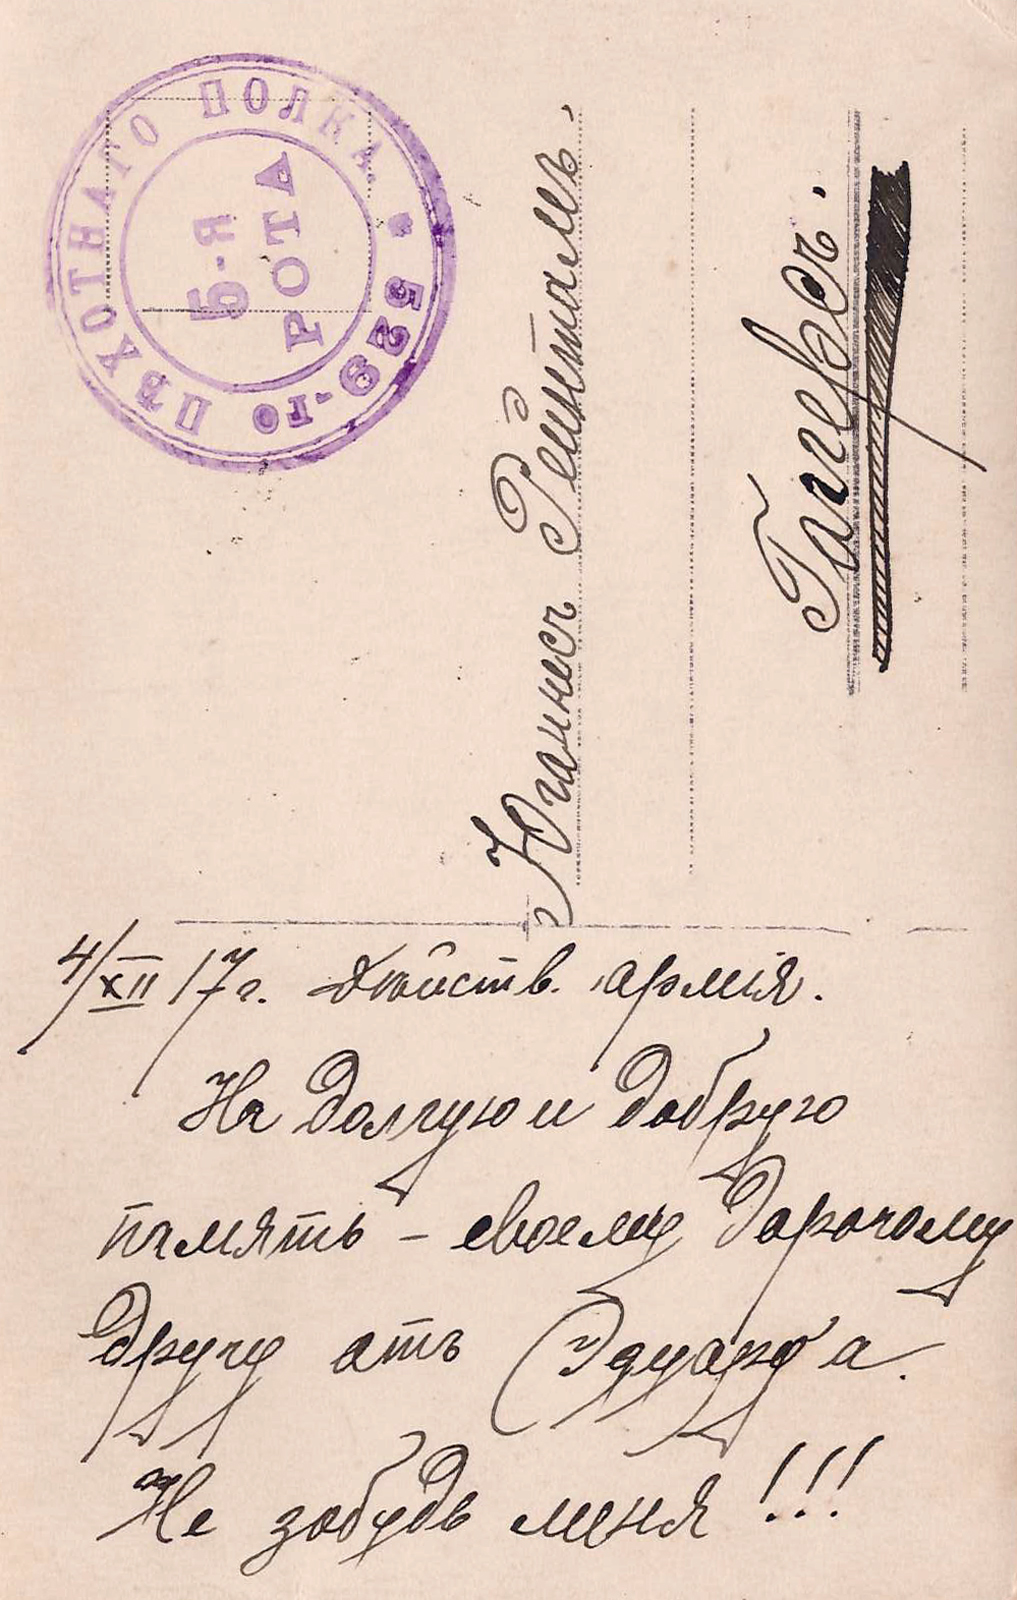 529-го ПѢХОТНАГО ПОЛКА *
5-я
РОТА
Юганнесъ Рейнталь.
Гапсель.
4/XII 17 г. Дѣйств. армія.
На долгую и добрую
память – своему дорогому
другу отъ Эдуарда.
Не забудь меня!!!